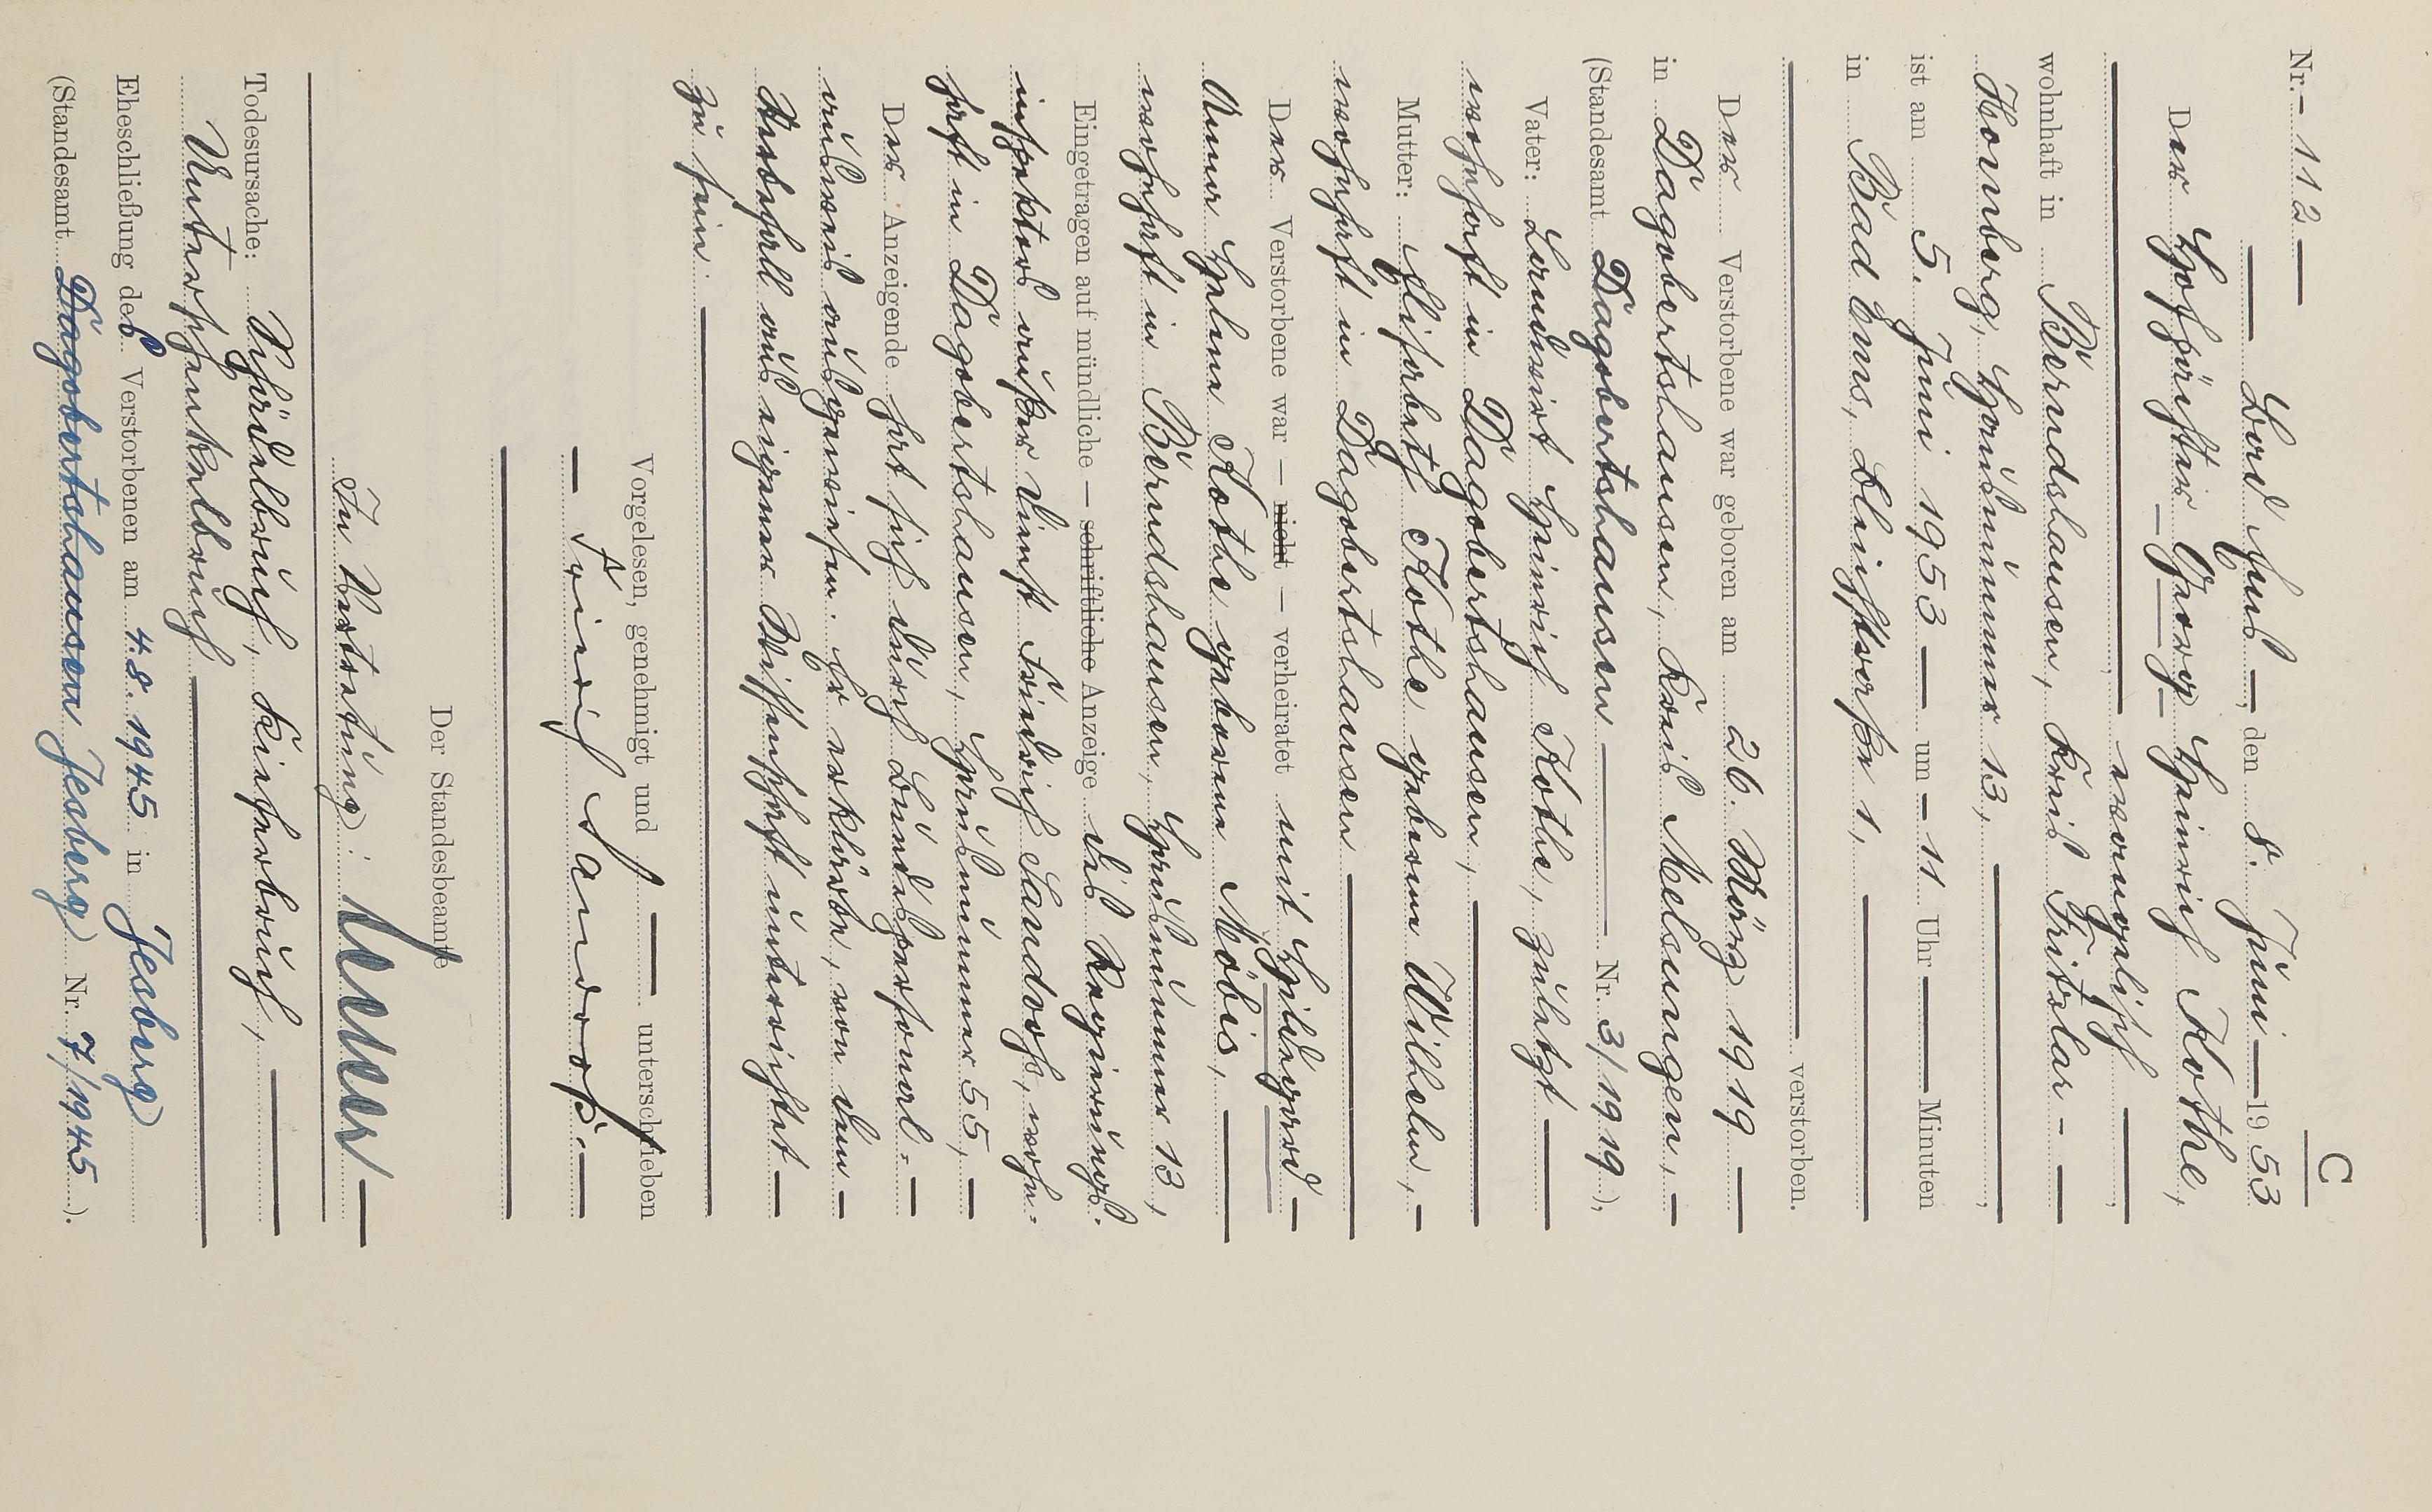 C
Nr. 112
Bad Ems, den 8. Juni 1953
Der Hofpächter Georg Heinrich Kothe,
evangelisch,
wohnhaft in Berndshausen, Kreis Fritzlar-
Homberg, Hausnummer 13,
ist am 5. Juni 1953 um 11 Uhr Minuten
in Bad Ems, Bleichstraße 1,
verstorben.
Der Verstorbene war geboren am 26. März 1919
in Dagobertshausen, Kreis Melsungen,
(Standesamt Dagobertshausen Nr. 3/1919),
Vater: Landwirt Heinrich Kothe, zuletzt
wohnhaft in Dagobertshausen,
Mutter: Elisabeth Kothe geborene Wilhelm,
wohnhaft in Dagobertshausen
Der Verstorbene war — nicht — verheiratet mit Hildegard
Anna Helene Kothe geborene Möbis,
wohnhaft in Berndshausen, Hausnummer 13,
Eingetragen auf mündliche — schriftliche Anzeige des Regierungs-
inspektors außer Dienst Friedrich Sandrock, wohn-
haft in Dagobertshausen, Hausnummer 55,
Der Anzeigende hat sich durch Bundespersonal-
ausweis ausgewiesen. Er erklärte, von dem
Sterbefall aus eigener Wissenschaft unterrichtet
zu sein.
Vorgelesen, genehmigt und unterschrieben
Sandrock.
Der Standesbeamte
In Vertretung:
Todesursache: Schädelbruch, Kieferbruch,
Unterschenkelbruch
Eheschließung des Verstorbenen am 4.8.1945 in Jesberg
(Standesamt Dagobertshausen Jesberg Nr. 7/1945).